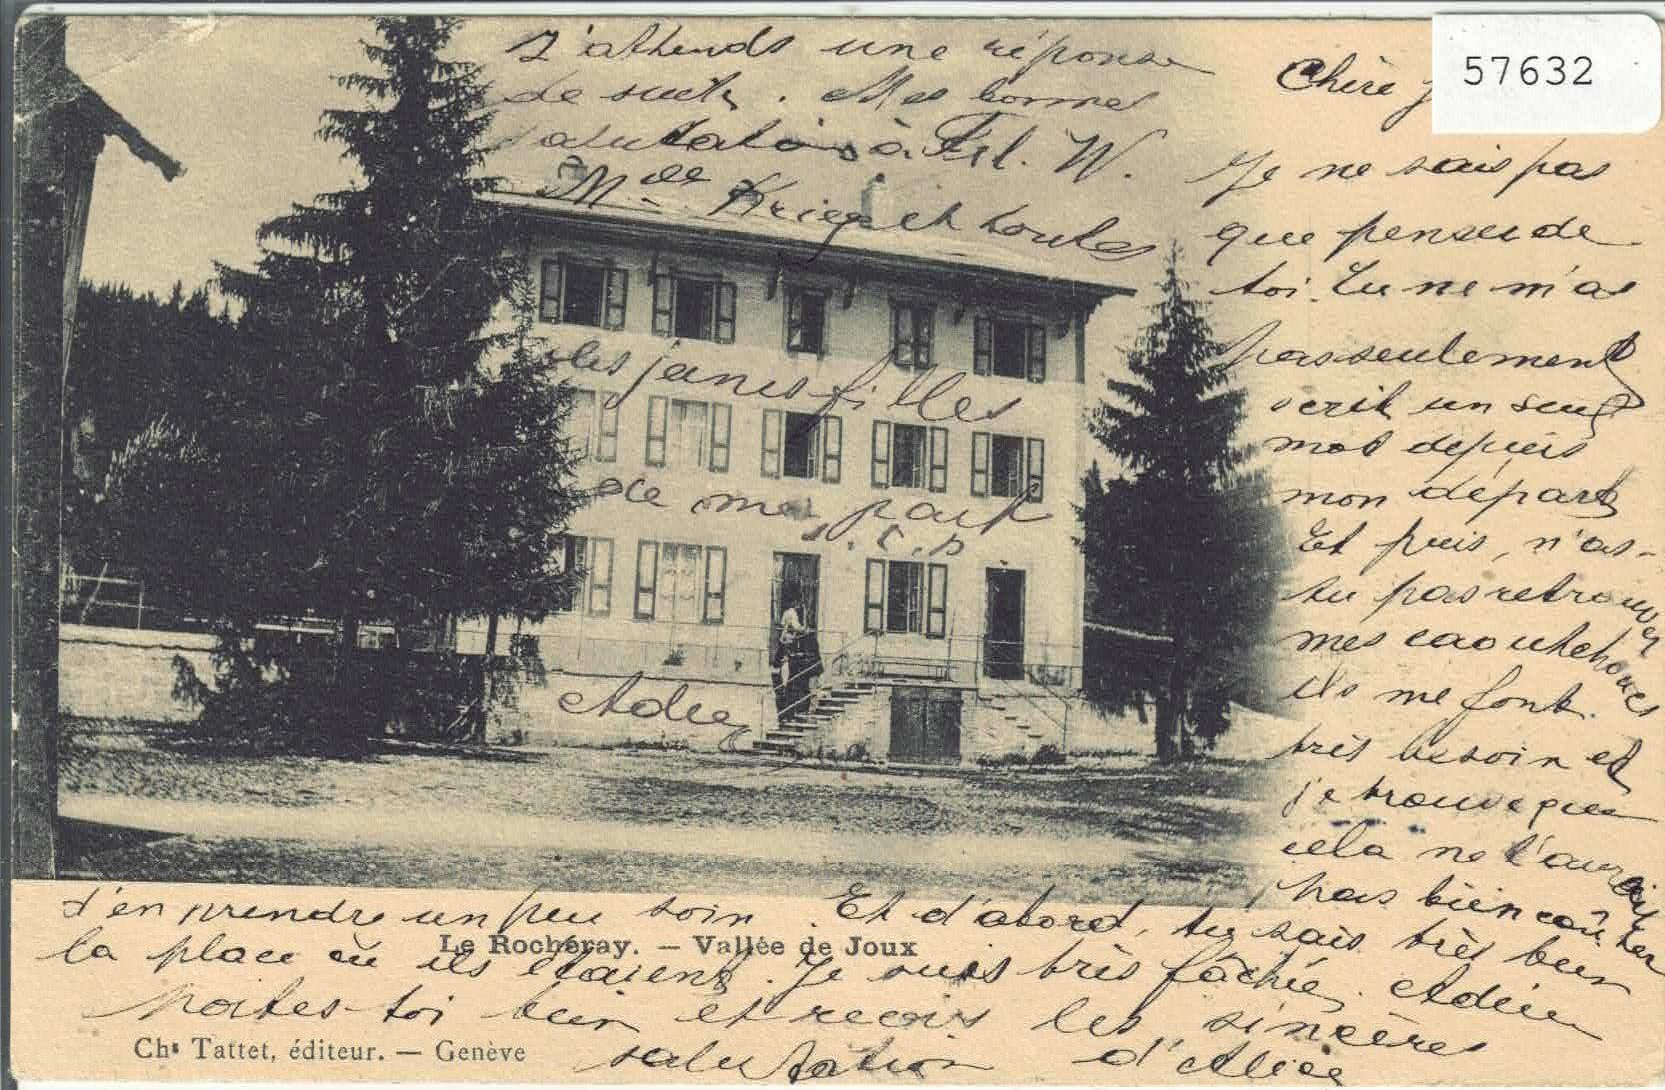 57632
Chère
Je ne sais pas
que penser de
toi. Tu ne m'as
pas seulement
écrit un seul
mot depuis
mon départ
Et puis, n'as-
tu pas retrouvé
mes caoutchoucs
ils me font
très besoin et
je trouve que
cela ne t'aurait
pas bien coûter
d'en prendre un peu soin. Et d'abord, tu sais très bien
la place où ils étaient. Je suis très fâchée. Adieu
Portes-toi bien et reçois les sincères
salutation d'Alice
J'attends une réponse
de suite. Mes bonnes
salutations à Frl. W.
Mlle Krieg et toutes
les jeunes filles
de ma part
Adieu
Le Rocheray. — Vallée de Joux
Chs Tattet, éditeur. — Genève